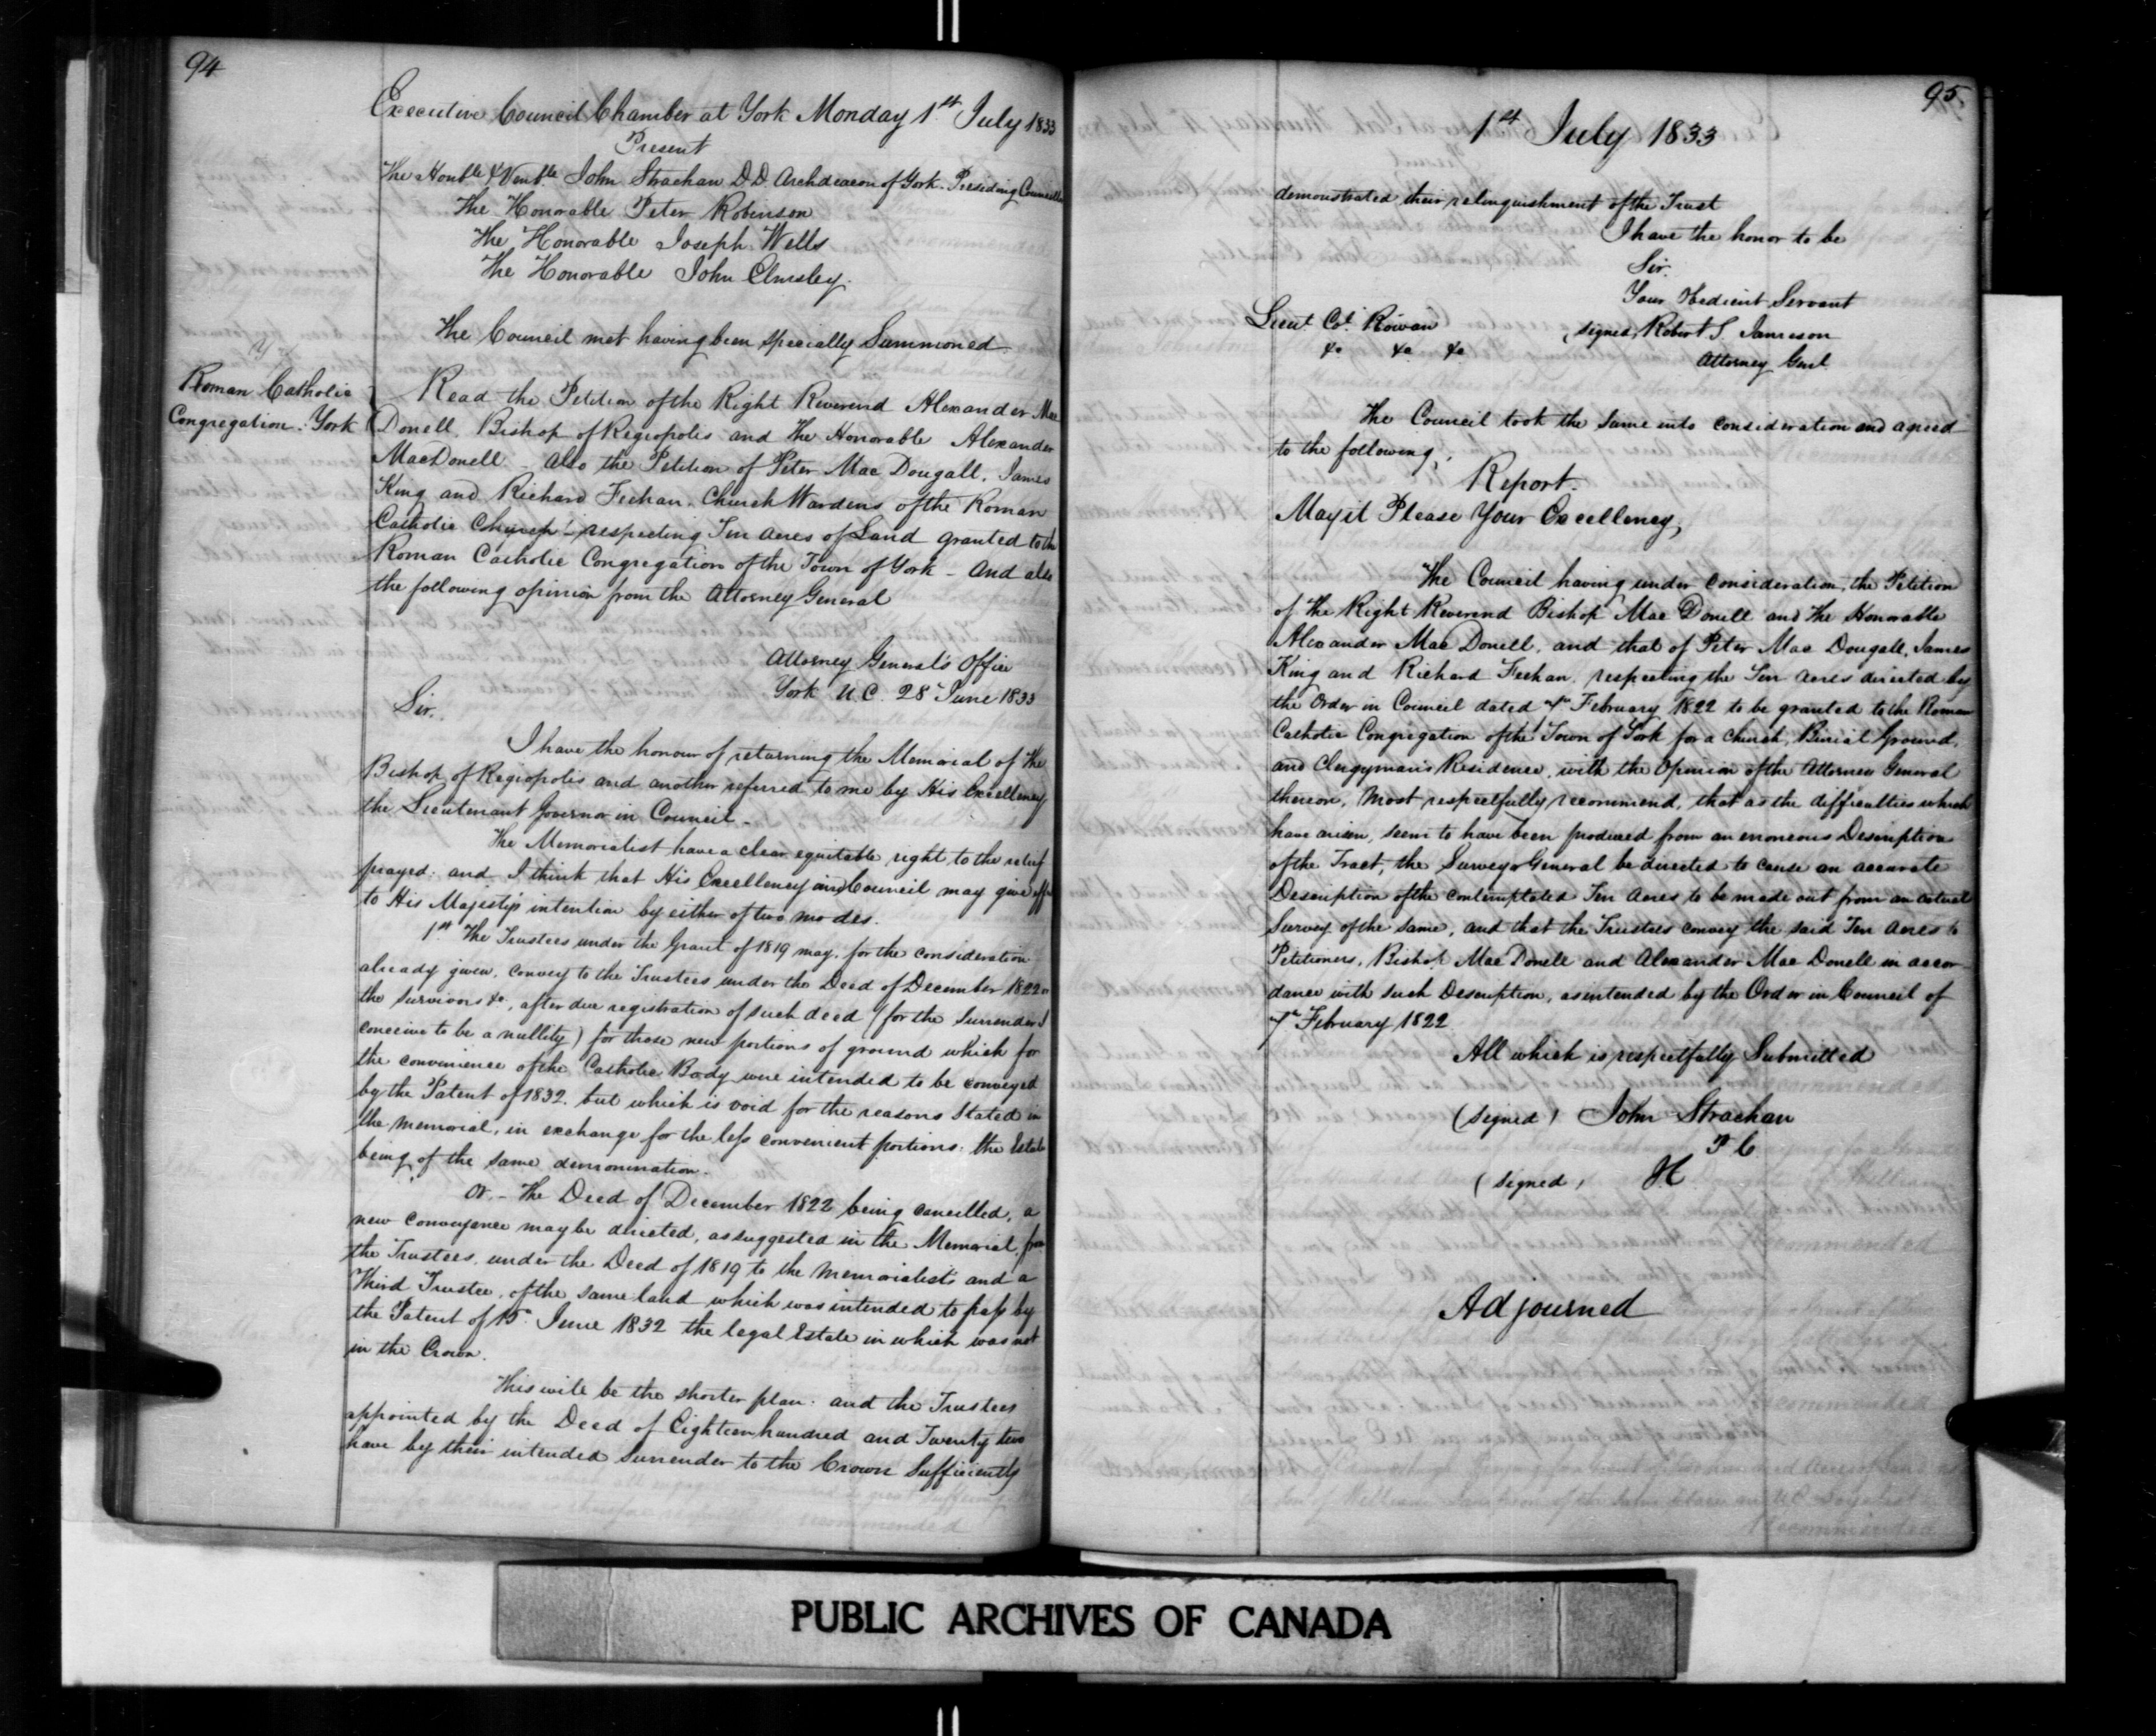 94
Executive Council Chamber at York Monday 1st July 1833
Present
The Honble & Venble John Strachan D.D. Archdeacon of York. Presiding Councillor
The Honorable Peter Robinson
The Honorable Joseph Wells
The Honorable John Elmsley.
The Council met having been specially Summoned.
Roman Catholic
Congregation. York
Read the Petition of the Right Reverend Alexander Mac
Donell, Bishop of Regiopolis and the Honorable Alexander
MacDonell – Also the Petition of Peter Mac Dougall, James
King and Richard Feehan, Church Wardens of the Roman
Catholic Church – respecting Ten Acres of Land granted to the
Roman Catholic Congregation of the Town of York – And also
the following opinion from the Attorney General
Attorney General's Office
York U.C. 28th June 1833
Sir.
I have the honour of returning the Memorial of the
Bishop of Regiopolis and another referred to me by His Excellency
the Lieutenant Governor in Council –
The Memorialist have a clear equitable right to the relief
prayed. and I think that His Excellency in Council may give effect
to His Majesty's intention by either of two modes.
1st The Trustees under the Grant of 1819 may, for the consideration
already given, convey to the Trustees under the Deed of December 1822 or
the survivors &c, after due registration of such deed (for the Surrender I
conceive to be a nullity) for those new portions of ground which for
the convenience of the Catholic Body were intended to be conveyed
by the Patent of 1832. but which is void for the reasons stated in
the memorial, in exchange for the less convenient portions. the Estate
being of the same denomination.
Or – The Deed of December 1822 being cancelled, a
new conveyance may be directed, as suggested in the Memorial, from
the Trustees, under the Deed of 1819 to the Memorialists and a
Third Trustee, of the same land which was intended to pass by
the Patent of 15th June 1832 the legal Estate in which was not
in the Crown.
This will be the shorter plan. and the Trustees
appointed by the Deed of Eighteen hundred and Twenty two
have by their intended Surrender to the Crown Sufficiently
95
1st July 1833
demonstrated their relinquishment of the Trust
I have the honor to be
Sir.
Your Obedient Servant
Lieut. Col. Rowan
(signed) Robert S. Jameson
&c &c &c
Attorney Genl
The Council took the same into consideration and agreed
to the following;
Report.
May it Please Your Excellency,
The Council having under consideration, the Petition
of the Right Reverend Bishop Mac Donell and the Honorable
Alexander Mac Donell, and that of Peter Mac Dougall, James
King and Richard Feehan, respecting the Ten Acres directed by
the Order in Council dated 7th February 1822 to be granted to the Roman
Catholic Congregation of the Town of York for a Church, Burial Ground,
and Clergyman's Residence, with the Opinion of the Attorney General
thereon, Most respectfully recommend, that as the difficulties which
have arisen, seem to have been produced from an erroneous Description
of the Tract, the Surveyor General be directed to cause an accurate
Description of the contemplated Ten Acres to be made out from an actual
Survey of the same, and that the Trustees convey the said Ten Acres to
Petitioners, Bishop Mac Donell and Alexander Mac Donell in accor-
dance with such Description, as intended by the Order in Council of
7th February 1822
All which is respectfully Submitted
(signed) John Strachan
P C
(signed)
Adjourned
PUBLIC ARCHIVES OF CANADA